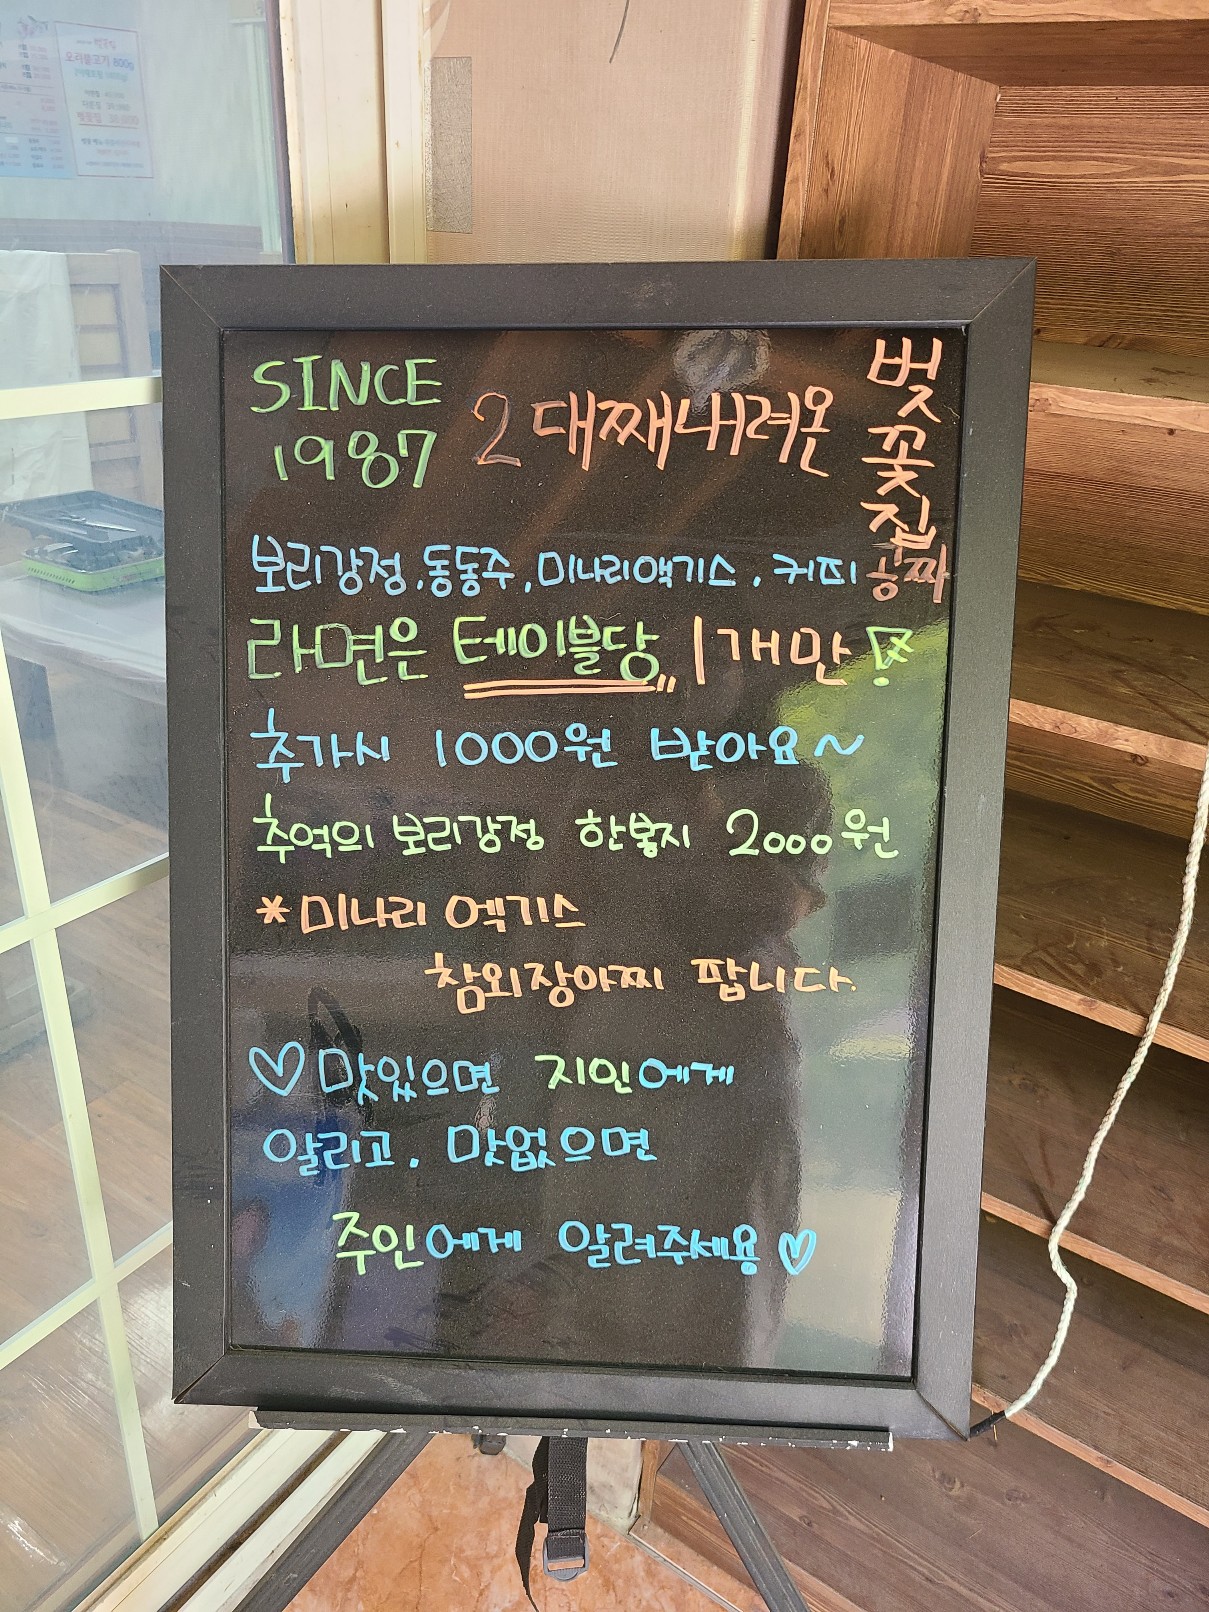 오리불고기 800g
SINCE
1987
2대째내려온
벚꽃집
보리강정, 동동주, 미나리액기스, 커피 공짜
라면은 테이블당 1개만!
추가시 1000원 받아요~
추억의 보리강정 한봉지 2000원
*미나리 엑기스
참외장아찌 팝니다.
♡맛있으면 지인에게
알리고, 맛없으면
주인에게 알려주세용♡